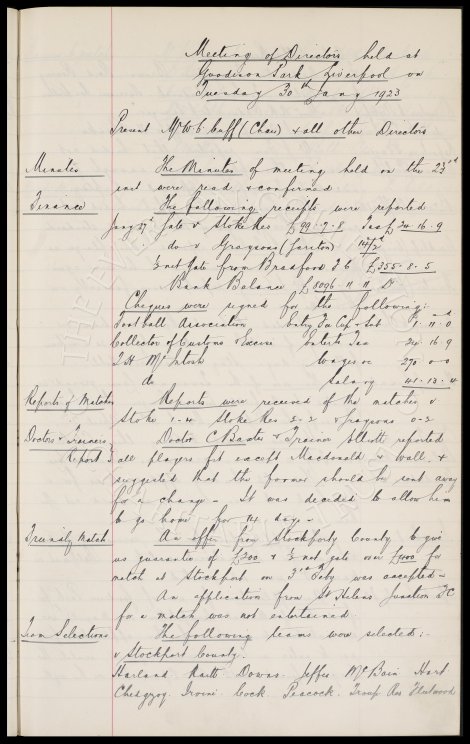 Meeting of Directors held at
Goodison Park Liverpool on
Tuesday 30th Jany 1923
Present Mr W C Cuff (Chair) & all other Directors
Minutes The Minutes of meeting held on the 23rd
inst were read & confirmed
Finance The following receipts were reported
Jany 27th Gate v Stoke Res £99-7-8 Tax £24-16-9
do v Grayson's
½ net Gate from Bradford £355-8-5
Bank Balance £8096-11-11 Dr
Cheques were signed for the following:-
Football Association Entry Cup & Sub 1-11-0
Collector of Customs & Excise Enterts Tax 24-16-9
T H McIntosh Wages a/c 270-0-0
do Salary 41-13-4
Reports of Matches Reports were received of the matches v
Stoke 1-4 Stoke Res 2-2 & Graysons 0-2
Doctors & Trainers Doctor C Baxter & Trainer Elliott reported
Report all players fit except Macdonald & Wall &
suggested that the former should be sent away
for a change - It was decided to allow him
to go home for 14 days -
Friendly Match An offer from Stockport County to give
us guarantee of £200 & ½ net gate over £400 for
match at Stockport on 3rd Feby was accepted -
An application from St Helens Junction FC
for a match was not entertained.
Team Selections The following teams were selected:-
v Stockport County.
Harland Raitt Downs Jeffs McBain Hart
Chedgzoy Irvine Cock Peacock Troup Res Fleetwood